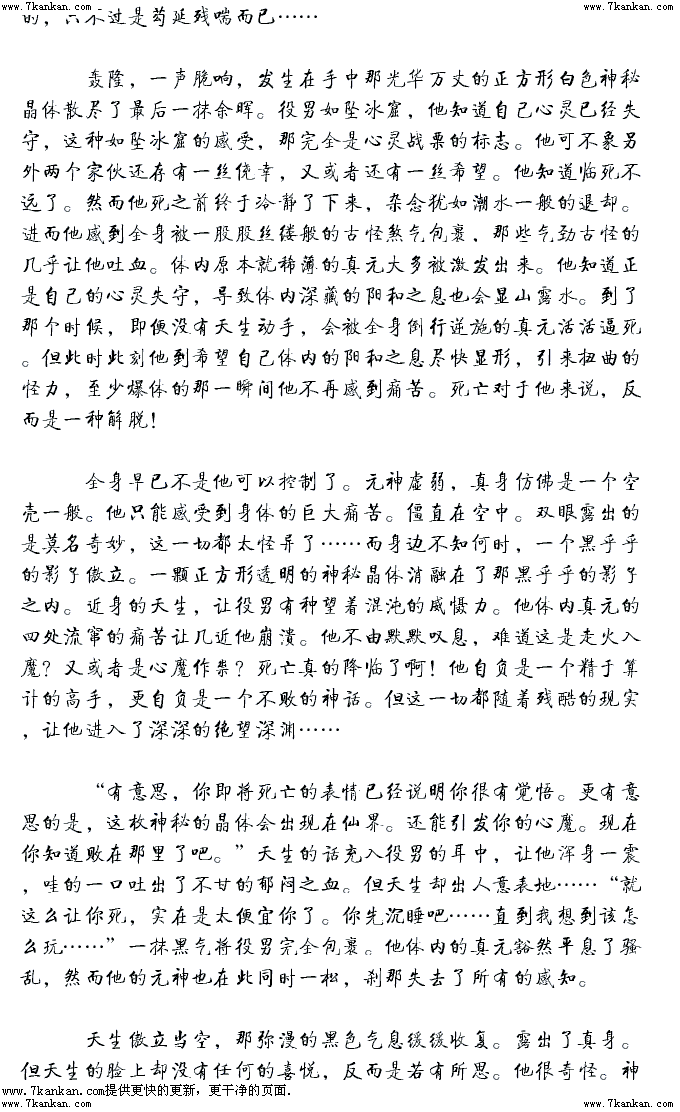 www.7kankan.com www.7kankan.com
的，只不过是苟延残喘而已……
轰隆，一声脆响，发生在手中那光华万丈的正方形白色神秘
晶体散尽了最后一抹余晖。役男如坠冰窟，他知道自己心灵已经失
守，这种如坠冰窟的感受，那完全是心灵战栗的标志。他可不象另
外两个家伙还存有一丝侥幸，又或者还有一丝希望。他知道临死不
远了。然而他死之前终于冷静了下来，杂念犹如潮水一般的退却。
进而他感到全身被一股股丝缕般的古怪煞气包裹，那些气劲古怪的
几乎让他吐血。体内原本就稀薄的真元大多被激发出来。他知道正
是自己的心灵失守，导致体内深藏的阳和之息也会显山露水。到了
那个时候，即便没有天生动手，会被全身倒行逆施的真元活活逼死
。但此时此刻他到希望自己体内的阳和之息尽快显形，引来扭曲的
怪力，至少爆体的那一瞬间他不再感到痛苦。死亡对于他来说，反
而是一种解脱！
全身早已不是他可以控制了。元神虚弱，真身仿佛是一个空
壳一般。他只能感受到身体的巨大痛苦。僵直在空中。双眼露出的
是莫名奇妙，这一切都太怪异了……而身边不知何时，一个黑乎乎
的影子傲立。一颗正方形透明的神秘晶体消融在了那黑乎乎的影子
之内。近身的天生，让役男有种望着混沌的威慑力。他体内真元的
四处流窜的痛苦让几近他崩溃。他不由默默叹息，难道这是走火入
魔？又或者是心魔作祟？死亡真的降临了啊！他自负是一个精于算
计的高手，更自负是一个不败的神话。但这一切都随着残酷的现实
，让他进入了深深的绝望深渊……
“有意思，你即将死亡的表情已经说明你很有觉悟。更有意
思的是，这枚神秘的晶体会出现在仙界。还能引发你的心魔。现在
你知道败在那里了吧。”天生的话充入役男的耳中，让他浑身一震
，哇的一口吐出了不甘的郁闷之血。但天生却出人意表地……“就
这么让你死，实在是太便宜你了。你先沉睡吧……直到我想到该怎
么玩……”一抹黑气将役男完全包裹。他体内的真元豁然平息了骚
乱，然而他的元神也在此同时一松，刹那失去了所有的感知。
天生傲立当空，那弥漫的黑色气息缓缓收复。露出了真身。
但天生的脸上却没有任何的喜悦，反而是若有所思。他很奇怪。神
www.7kankan.com提供更快的更新，更干净的页面． www.7kankan.com